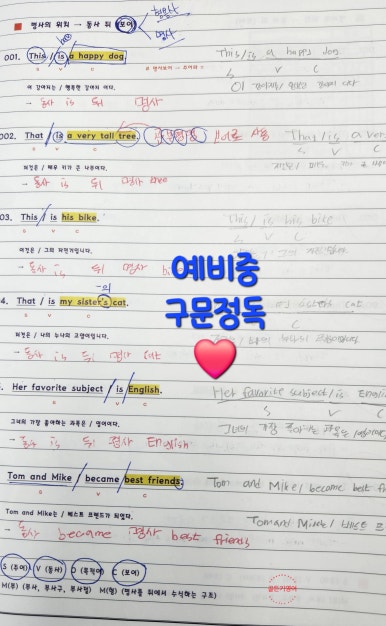 ■ 명사의 위치 → 동사 뒤 (보어) 형용사
명사
001. This / is a happy dog. This / is a happy dog
S V C ※ 명사보어 → 주어와 S V C
이 강아지는 / 행복한 강아지 이다.
→ 동사 is 뒤 명사
002. That / is a very tall tree. 보어로 사용 That / is a ver
S V C S V C
저것은 / 매우 키가 큰 나무이다.
→ 동사 is 뒤 명사 tree
03. This / is his bike. This / is his bike
S V C S V C
이것은 / 그의 자전거입니다.
→ 동사 is 뒤 명사 bi
-의
4. That / is my sister's cat. sisters cat
S V C C
저것은 / 나의 누나의 고양이입니다.
→ 동사 is 뒤 명사 cat
예비중
구문정독
. Her favorite subject / is English. Her favorite subject / is Englis
S V C S V C
그녀의 가장 좋아하는 과목은 / 영어이다. 그녀의 가장 좋아하는 과목은 /
→ 동사 is 뒤 명사 English
Tom and Mike / became best friends. Tom and Mike / became best f
S V C
Tom and Mike는 / 베스트 프렌드가 되었다. Tom and Mike / 베스트 프
→ 동사 became 명사 best friends
S (주어) V (동사) O (목적어) C (보어)
M(부) (부사, 부사구, 부사절) M(형) (명사를 뒤에서 수식하는 구조)